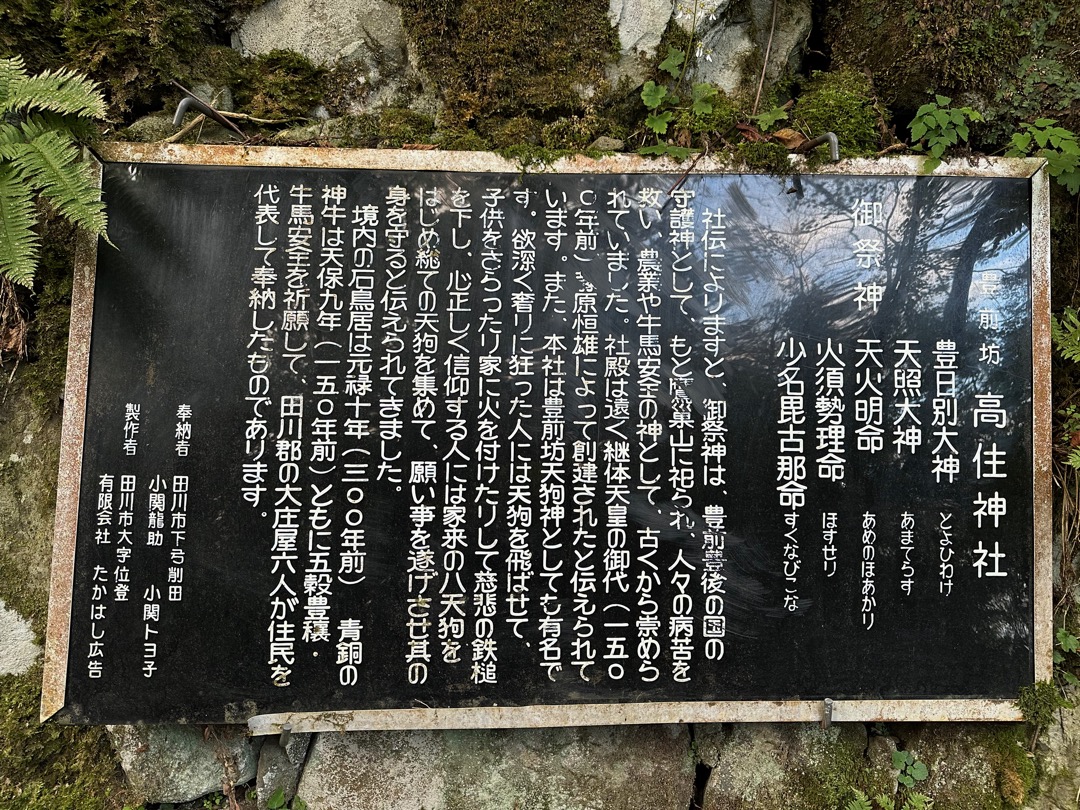 豊前坊 高住神社
御祭神
豊日別大神 とよひわけ
天照大神 あまてらす
天火明命 あめのほあかり
火須勢理命 ほすせり
少名毘古那命 すくなびこな
社伝によりますと、御祭神は、豊前豊後の国の
守護神として、もと鷹巣山に祀られ、人々の病苦を
救い、農業や牛馬安全の神として、古くから崇めら
れていました。社殿は遠く継体天皇の御代（一五〇
〇年前）原恒雄によって創建されたと伝えられて
います。また、本社は豊前坊天狗神としても有名で
す。欲深く奢りに狂った人には天狗を飛ばせて、
子供をさらったり家に火を付けたりして慈悲の鉄槌
を下し、心正しく信仰する人には家来の八天狗を
はじめ総ての天狗を集めて、願い事を遂げさせ其の
身を守ると伝えられてきました。
境内の石鳥居は元禄十年（三〇〇年前） 青銅の
神牛は天保九年（一五〇年前）ともに五穀豊穣・
牛馬安全を祈願して、田川郡の大庄屋六人が住民を
代表して奉納したものであります。
奉納者 田川市下弓削田
小関龍助 小関トヨ子
製作者 田川市大字位登
有限会社 たかはし広告